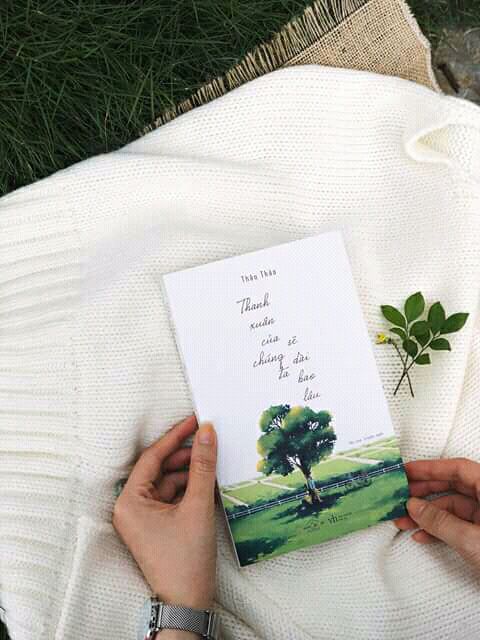 Thảo Thảo
Thanh
xuân
của sẽ
chúng dài
ta bao
lâu